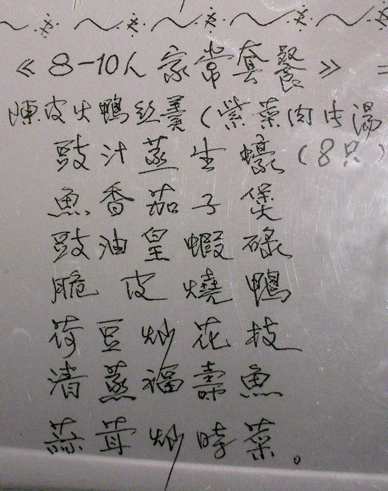 《8-10人家常套餐》
陳皮火鴨絲羹(紫菜肉生湯
豉汁蒸生蠔(8只)
魚香茄子煲
豉油皇蝦碌
脆皮燒鴨
荷豆炒花枝
清蒸福壽魚
蒜茸炒時菜。